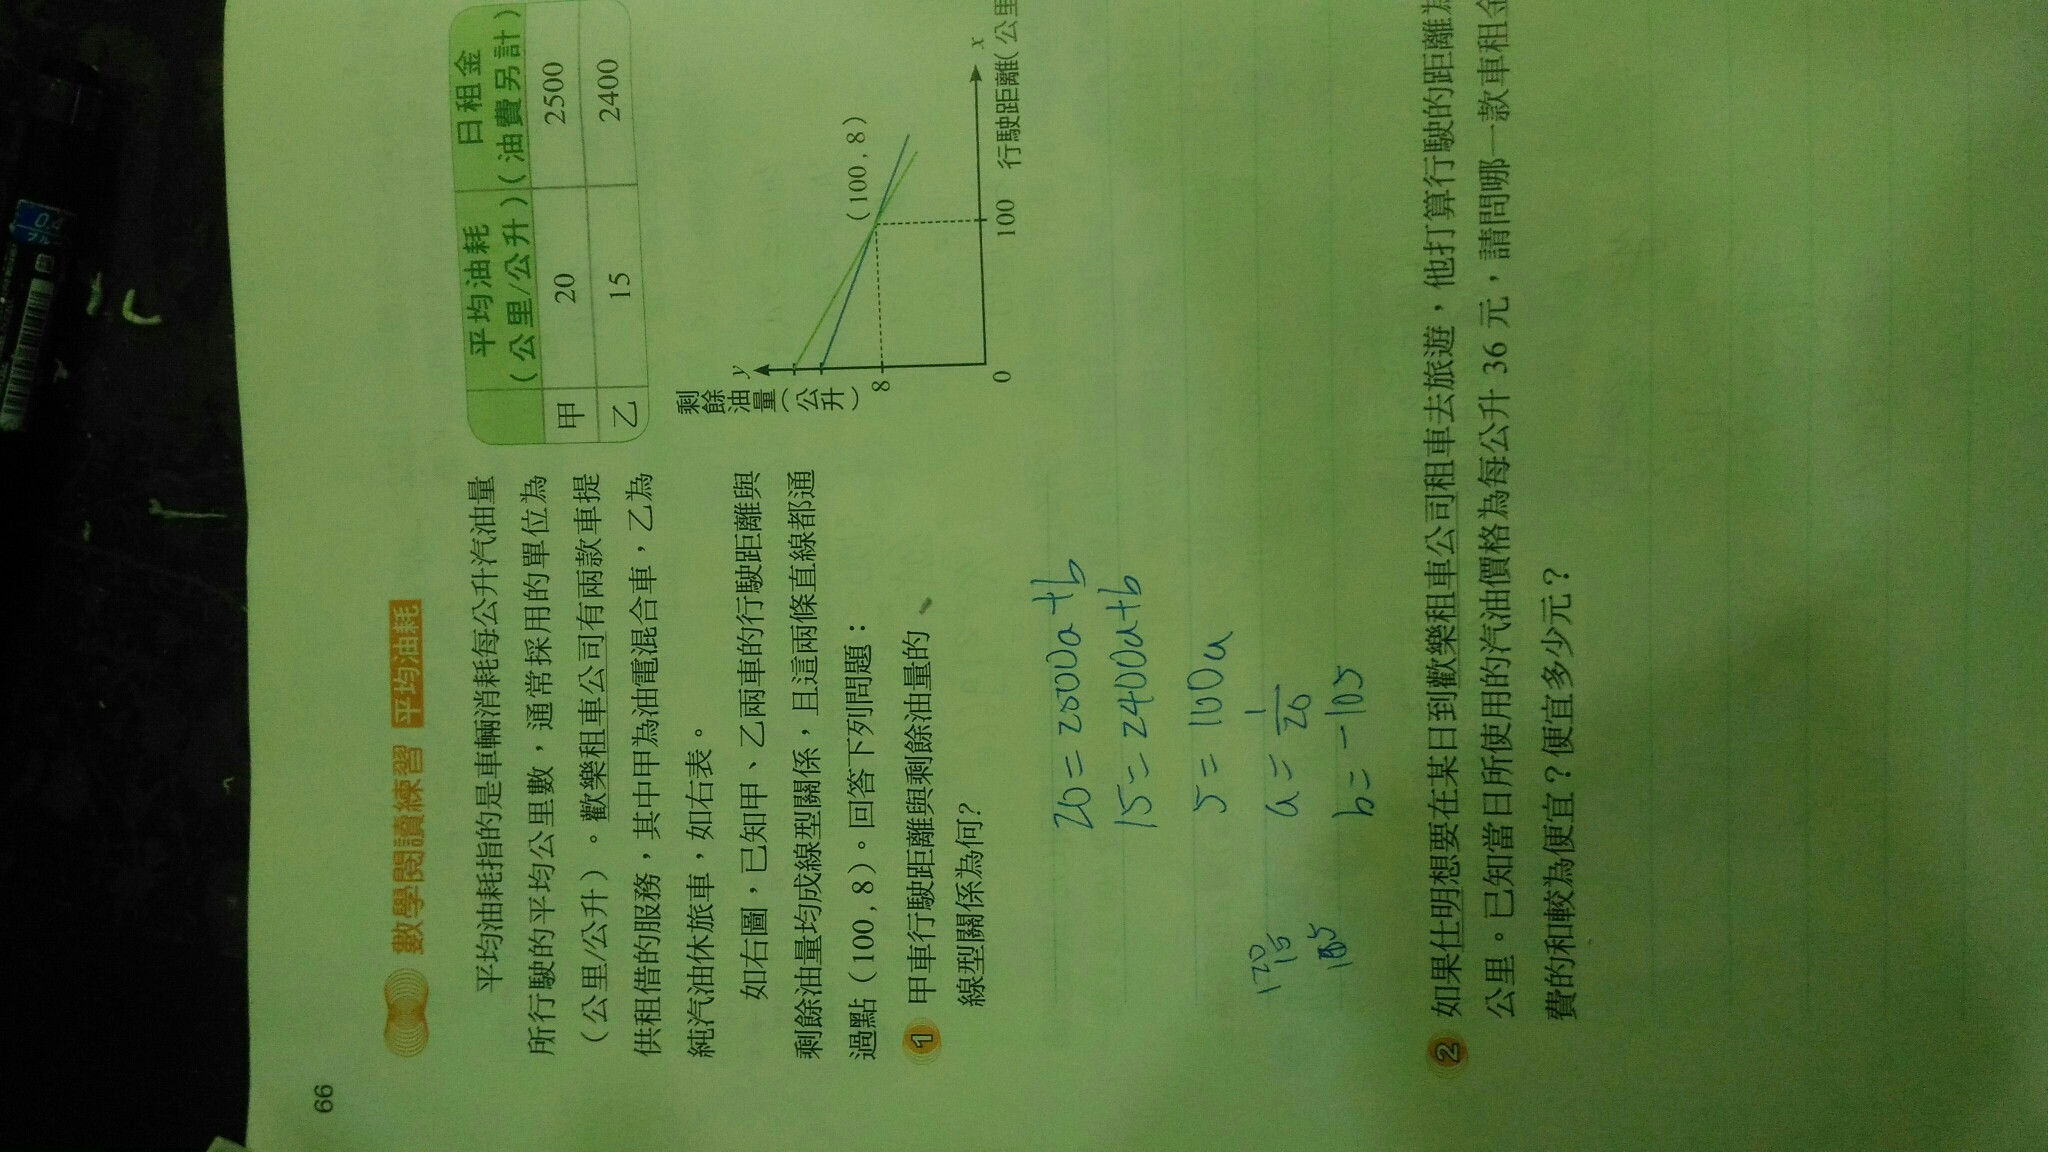 66
數學閱讀練習 平均油耗
平均油耗指的是車輛消耗每公升汽油量
所行駛的平均公里數，通常採用的單位為
（公里/公升）。歡樂租車公司有兩款車提
供租借的服務，其中甲為油電混合車，乙為
純汽油休旅車，如右表。
如右圖，已知甲、乙兩車的行駛距離與
剩餘油量均成線型關係，且這兩條直線都通
過點（100 , 8）。回答下列問題：
平均油耗 日租金
（公里/公升）（油費另計）
甲 20 2500
乙 15 2400
剩餘油量（公升）
y
(100 , 8)
8
0
100
x
行駛距離(公里
1 甲車行駛距離與剩餘油量的
線型關係為何?
15=2400a+b
5=100a
a=1/20
b=-105
2 如果仕明想要在某日到歡樂租車公司租車去旅遊，他打算行駛的距離為
公里。已知當日所使用的汽油價格為每公升 36 元，請問哪一款車租金
費的和較為便宜？便宜多少元？